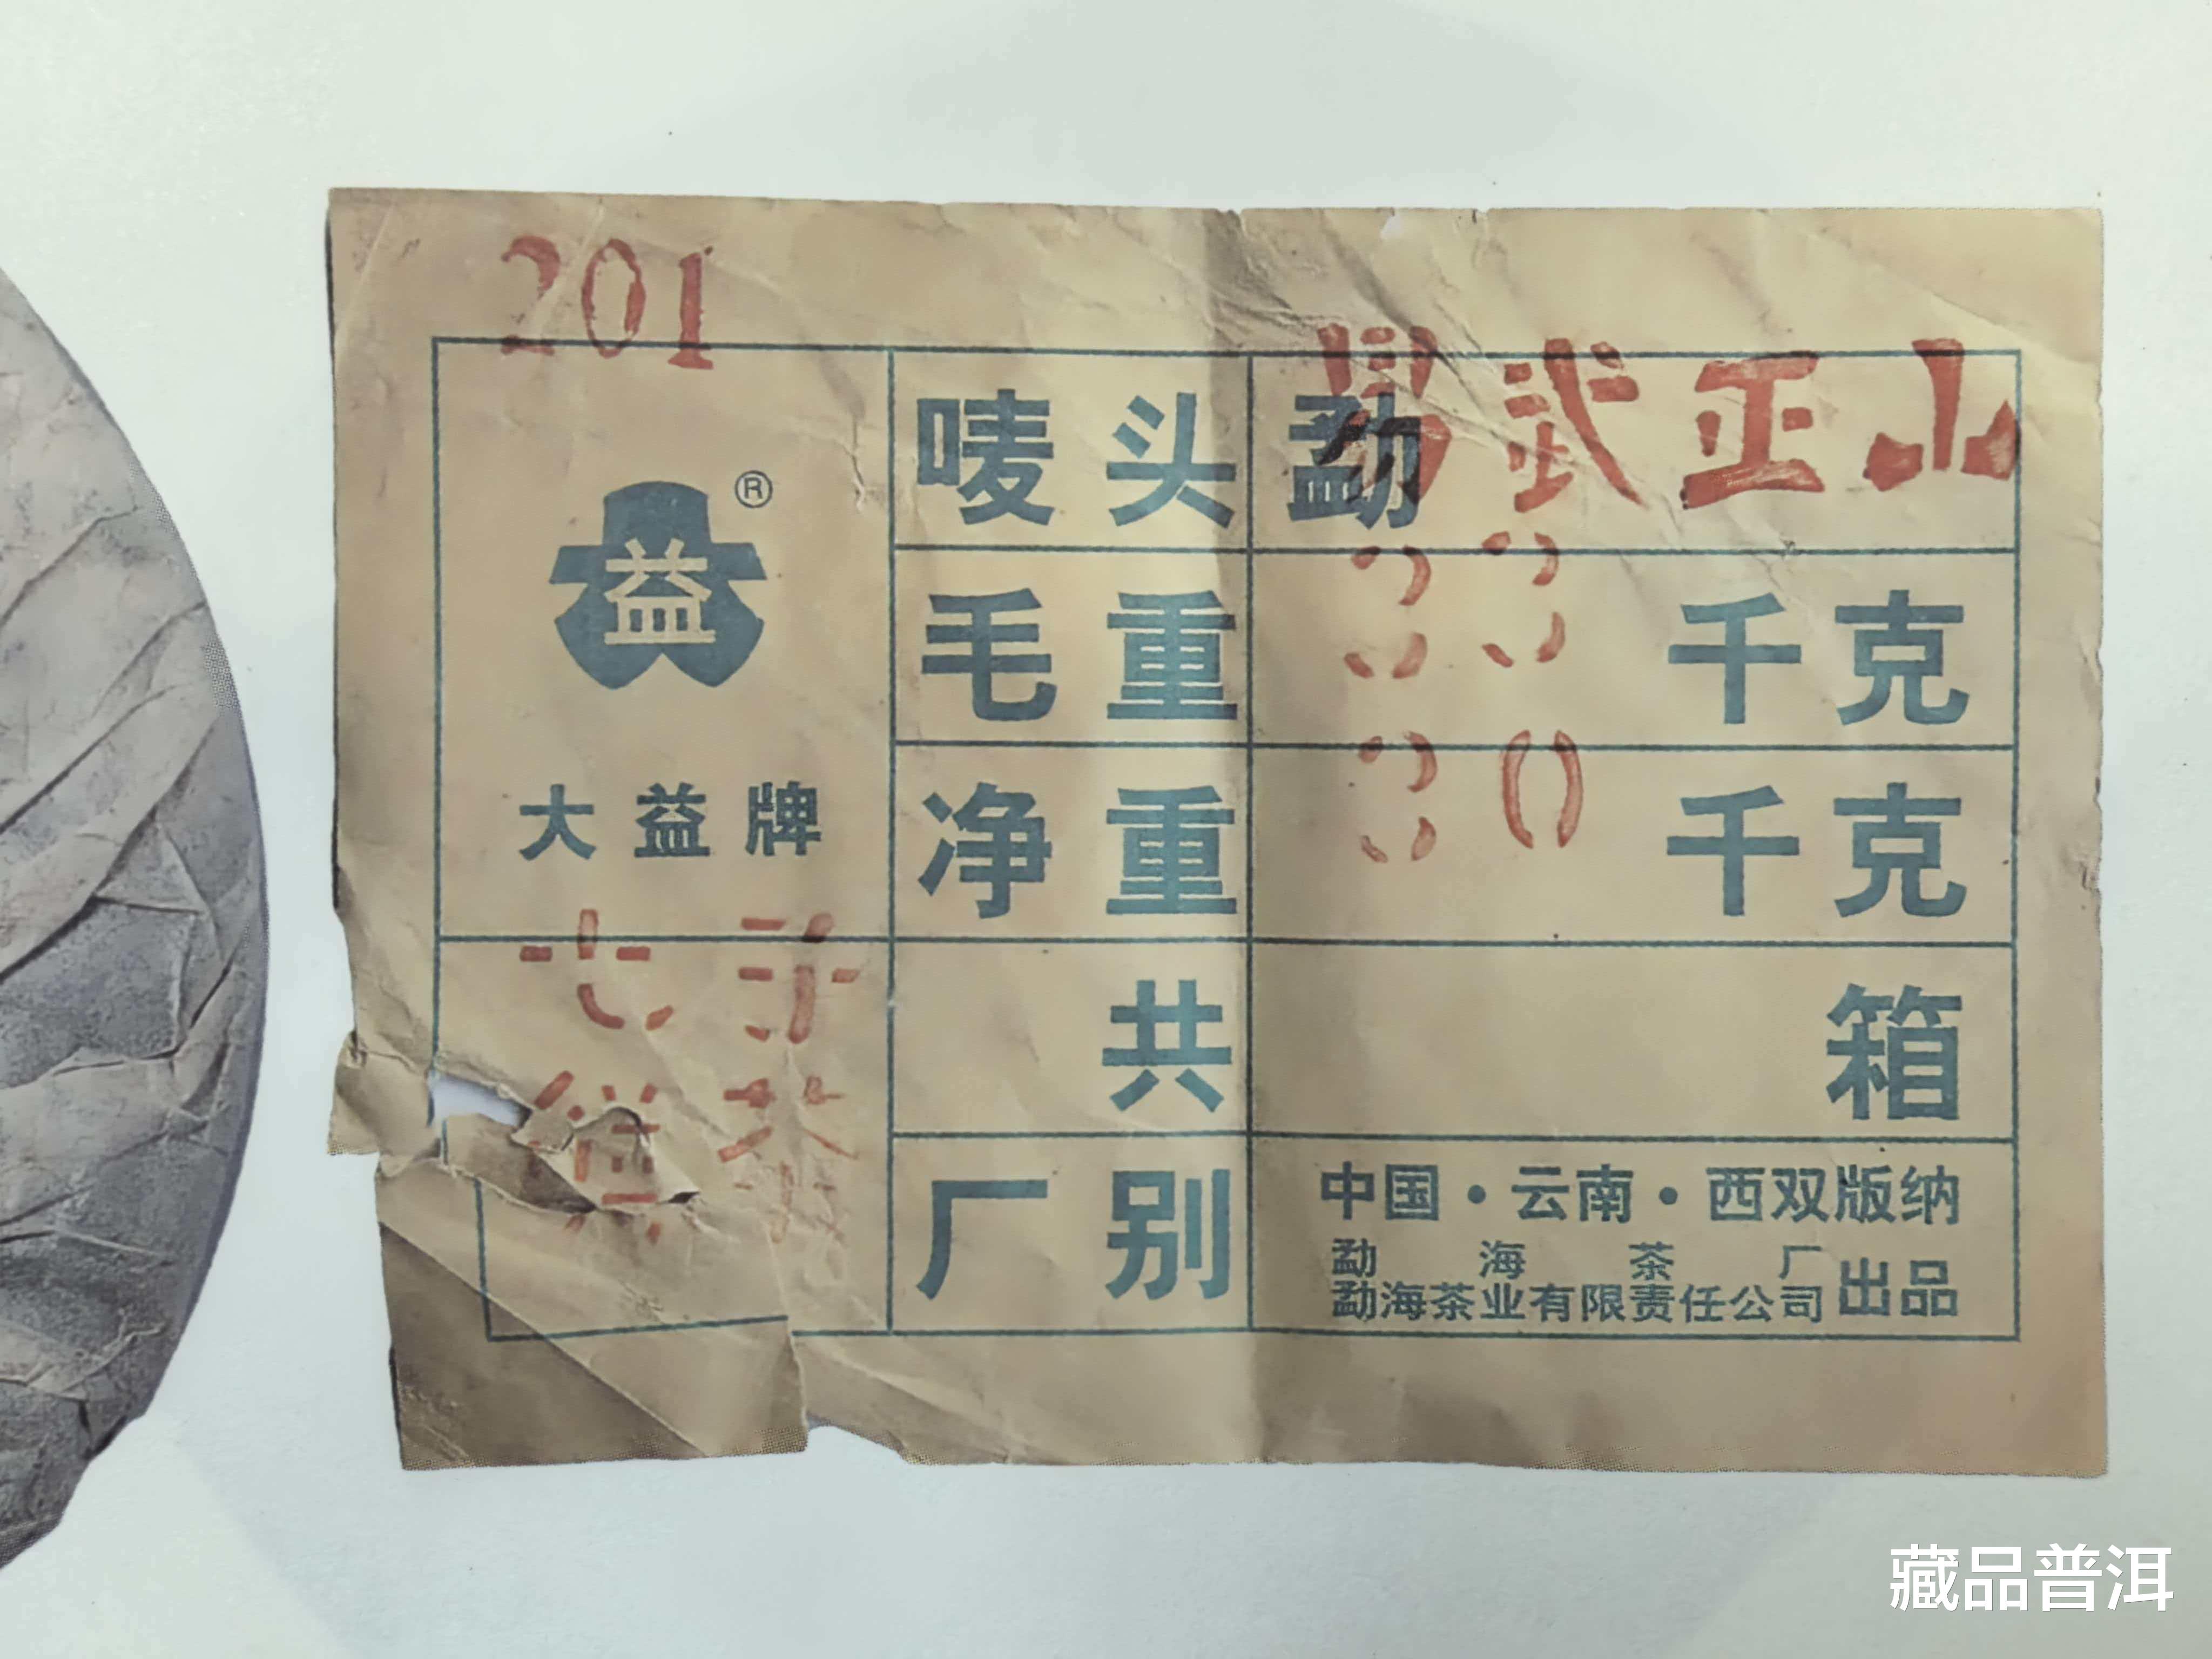 201
益®
大益牌
七子
饼茶
唛头 勐 易武正山
毛重 33 千克
净重 30 千克
共 箱
厂别 中国·云南·西双版纳
勐海茶厂
勐海茶业有限责任公司 出品
藏品普洱